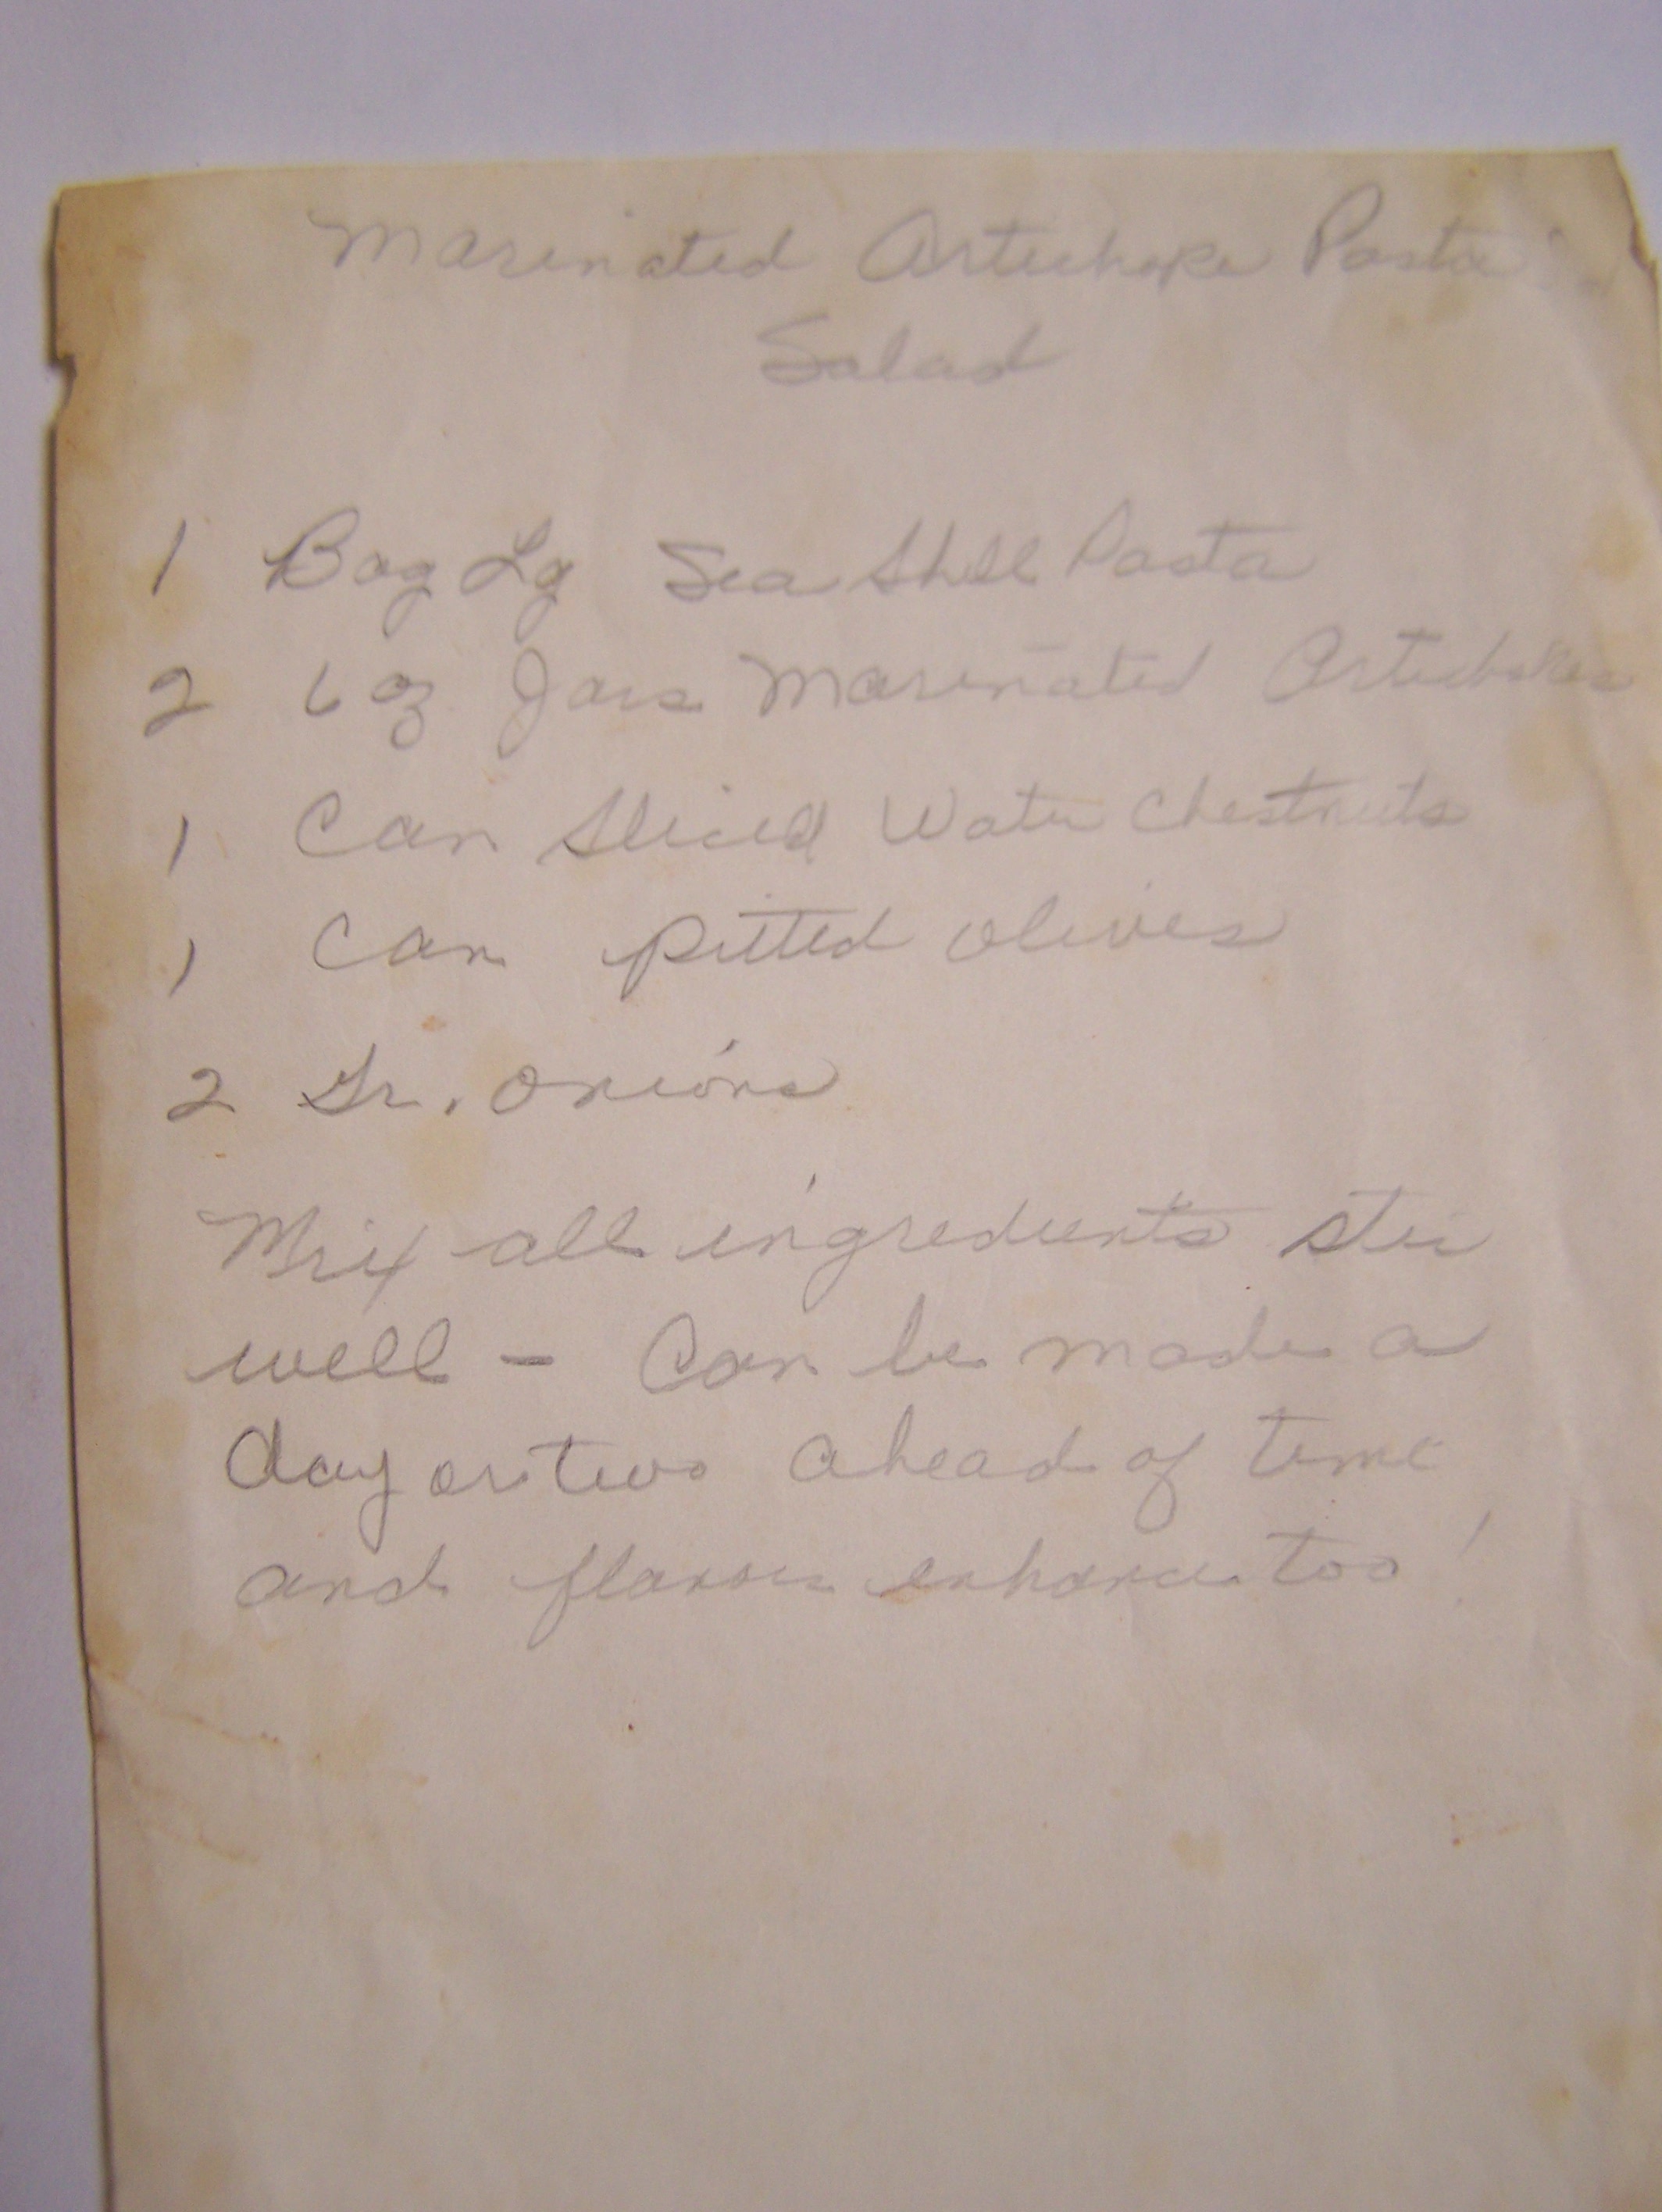 Marinated Artichoke Pasta
Salad
1 Bag Lg Sea Shell Pasta
2 6 oz Jars Marinated Artichokes
1 Can Sliced Water Chestnuts
1 Can pitted olives
2 Gr. onions
Mix all ingredients stir
well - Can be made a
day or two ahead of time
and flavors enhance too!